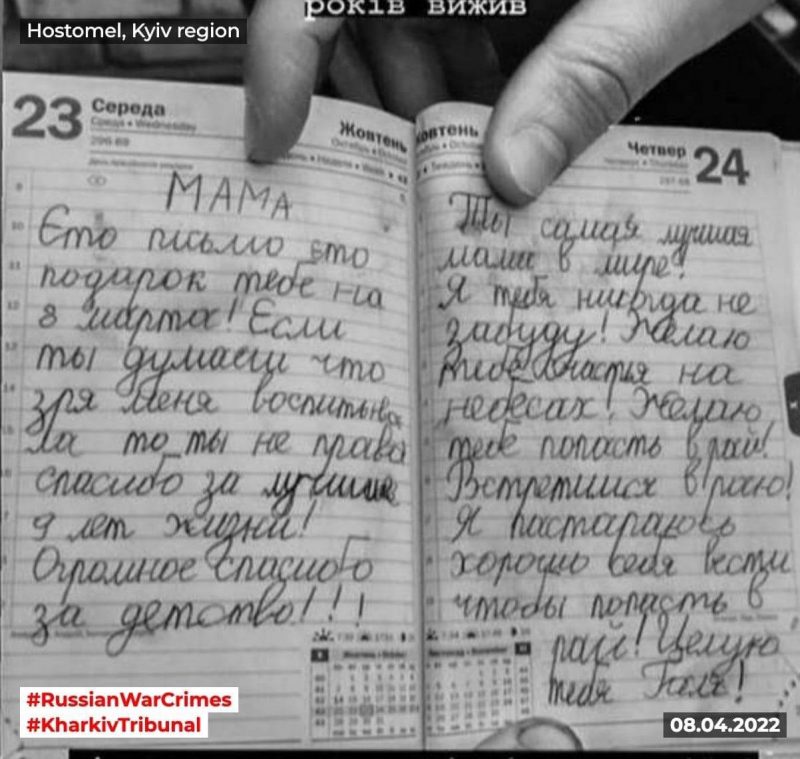 років вижив
Hostomel, Kyiv region
23 Середа
Среда • Wednesday
296-69
Жовтень
МАМА
Єто письмо это
подарок тебе на
8 марта! Если
ты думаеш что
зря меня воспитыва
ла то ты не права
спасибо за лучшие
9 лет жизни!
Огромное спасибо
за детство!!!
Жовтень
Четвер 24
Ты самая лучшая
мама в мире!
Я тебя никогда не
забуду! Желаю
тебе счастья на
небесах! Желаю
тебе попасть в рай!
Встретимся в раю!
Я пастараюсь
хорошо себя вести
чтобы попасть в
рай! Целую
тебя Галя!
#RussianWarCrimes
#KharkivTribunal
08.04.2022